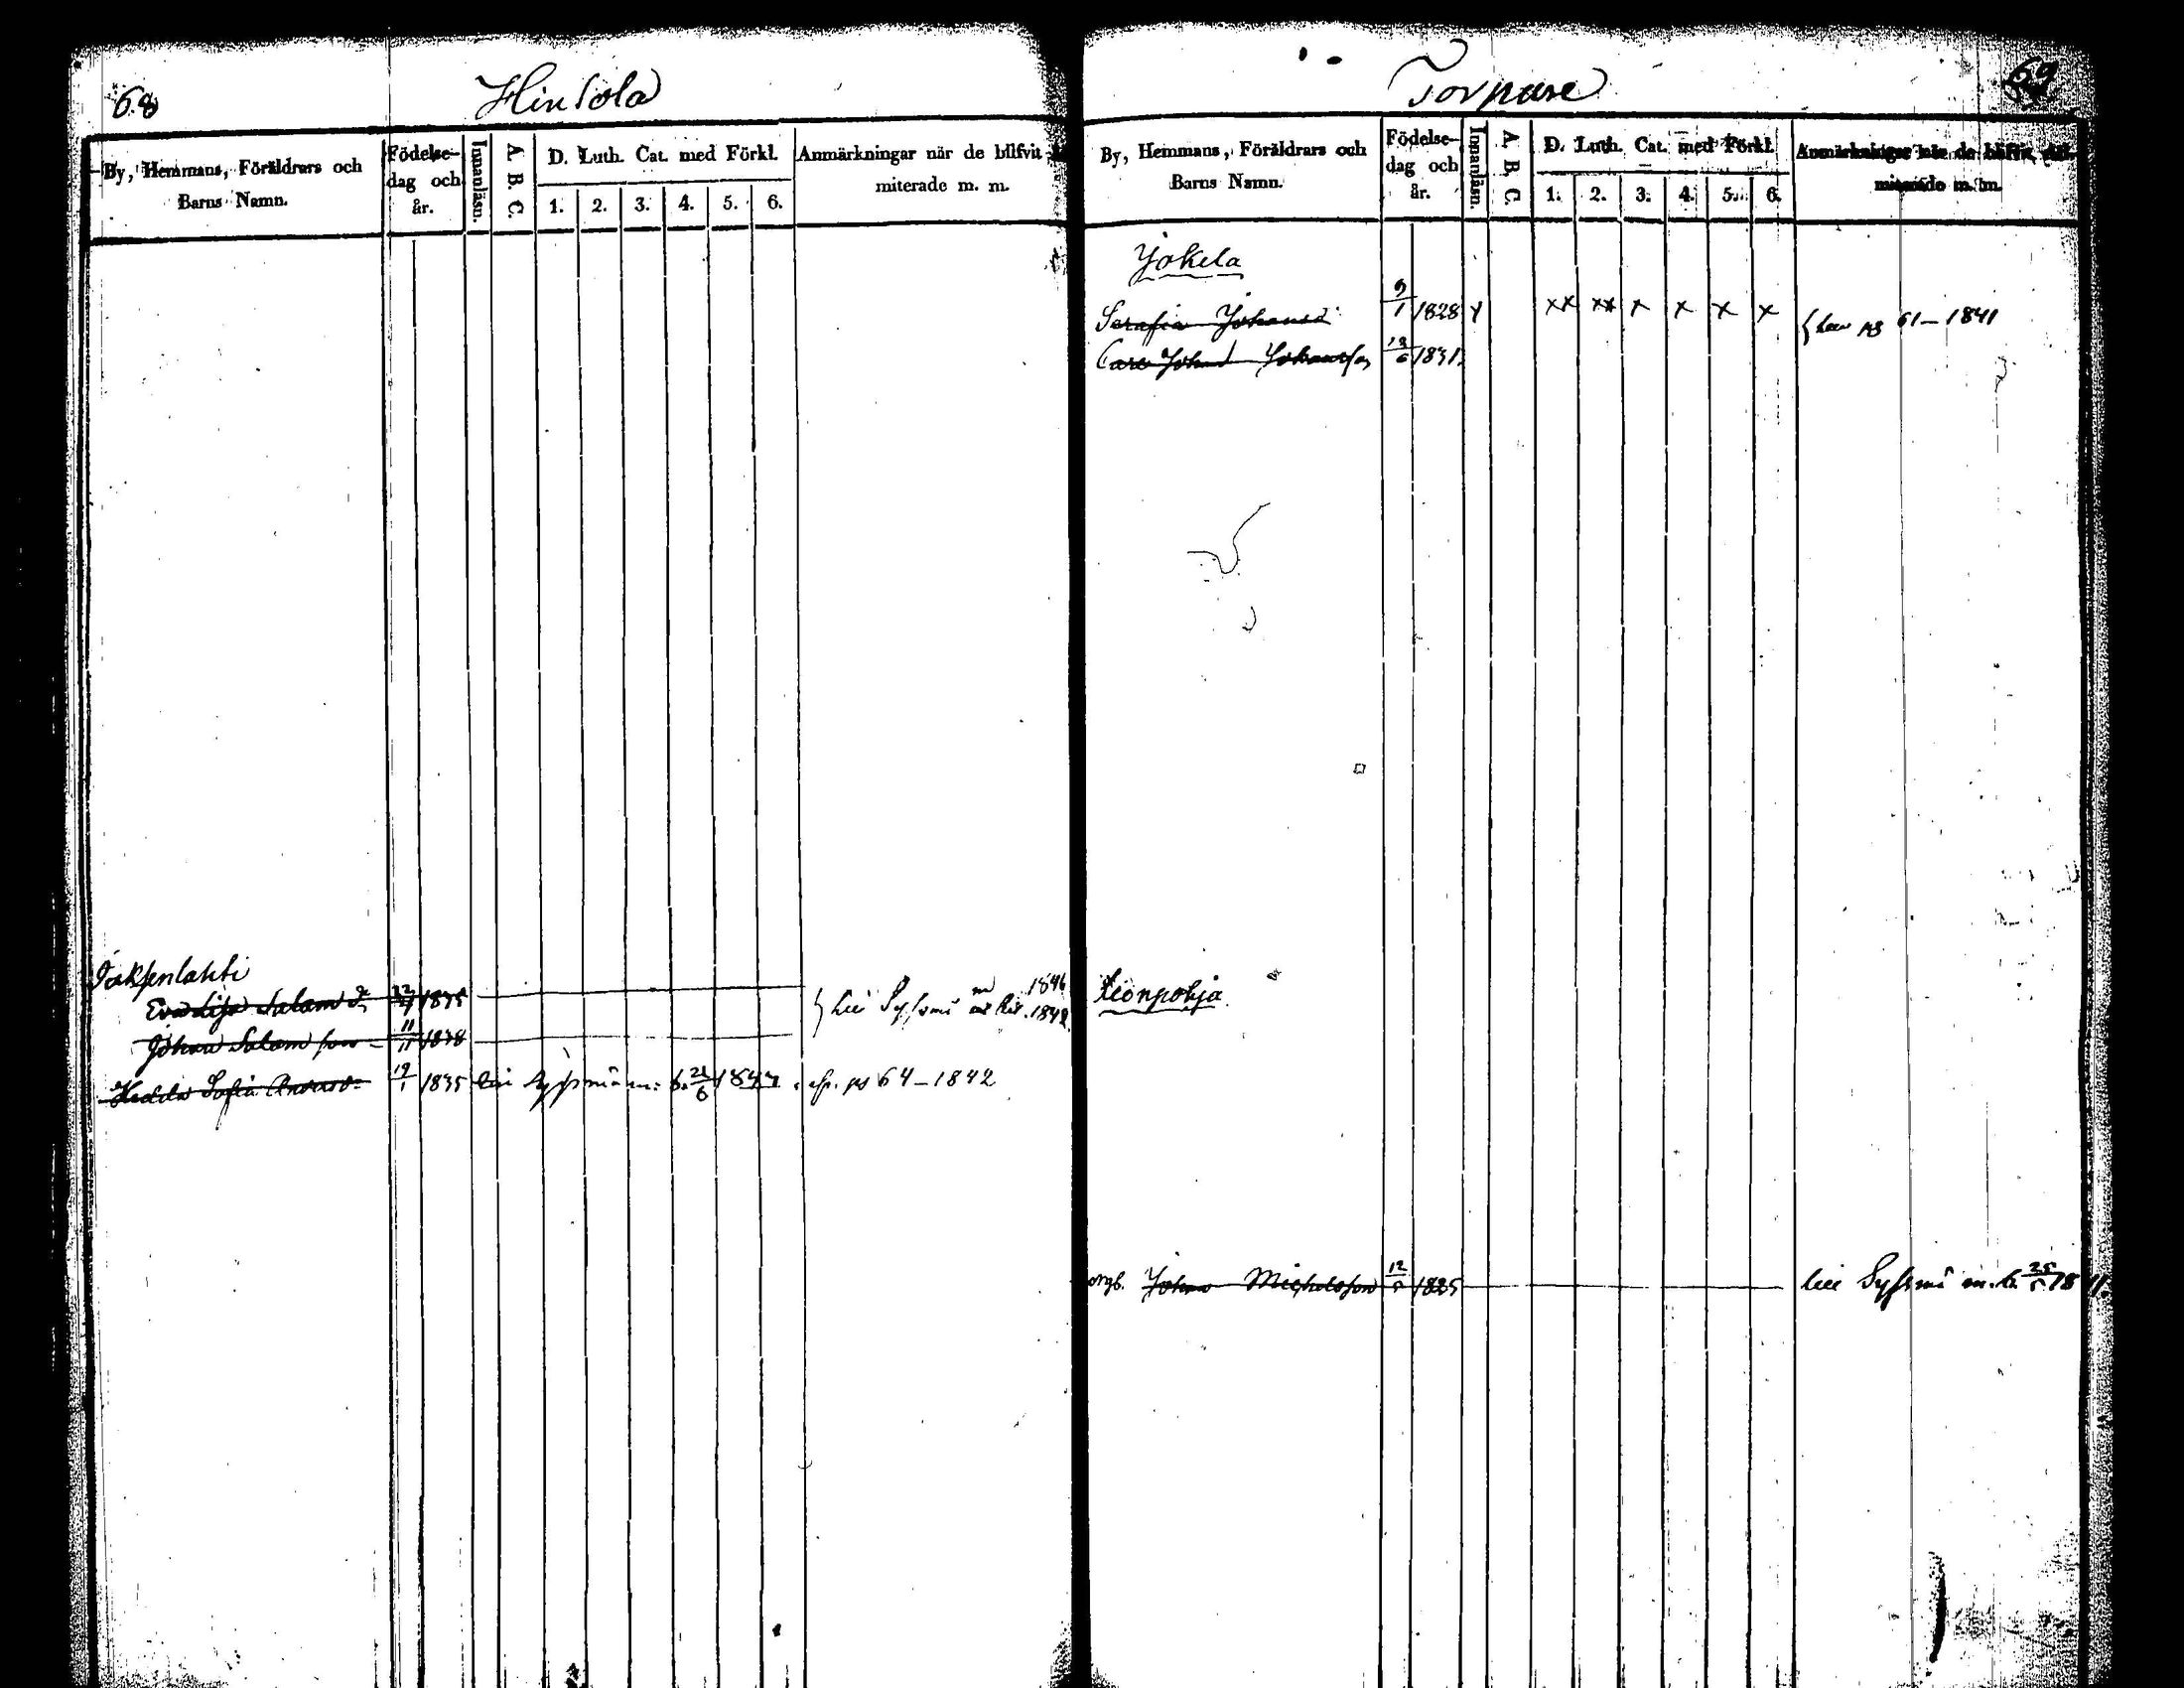 68
Hinsola
By, Hemmans, Föräldrars och
Barns Namn.
Födelse-
dag och
år.
Innanläsn.
A B C
D. Luth. Cat. med Förkl.
1. 2. 3. 4. 5. 6.
Anmärkningar när de blifvit
miterade m. m.
Eva Lisa Salam d. 1835
1846
1842
Johan Salam son 11/11 1838
Hedda Sofia 19/1 1835 Syssmä m. b. 21/6 1844 pg 64-1842
69
Torpare
By, Hemmans, Föräldrars och
Barns Namn.
Födelse-
dag och
år.
Innanläsn.
A B C
D. Luth. Cat. med Förkl.
1. 2. 3. 4. 5. 6.
Anmärkningar när de blifvit
miterade m. m.
Jokela
Serafia Johansd 9/1 1828 x xx xx x x x x
pg 61-1841
Carl Johan Johansson 1831
Johan Michelsson 12/5 1825 Syssmä m. b. 25/5